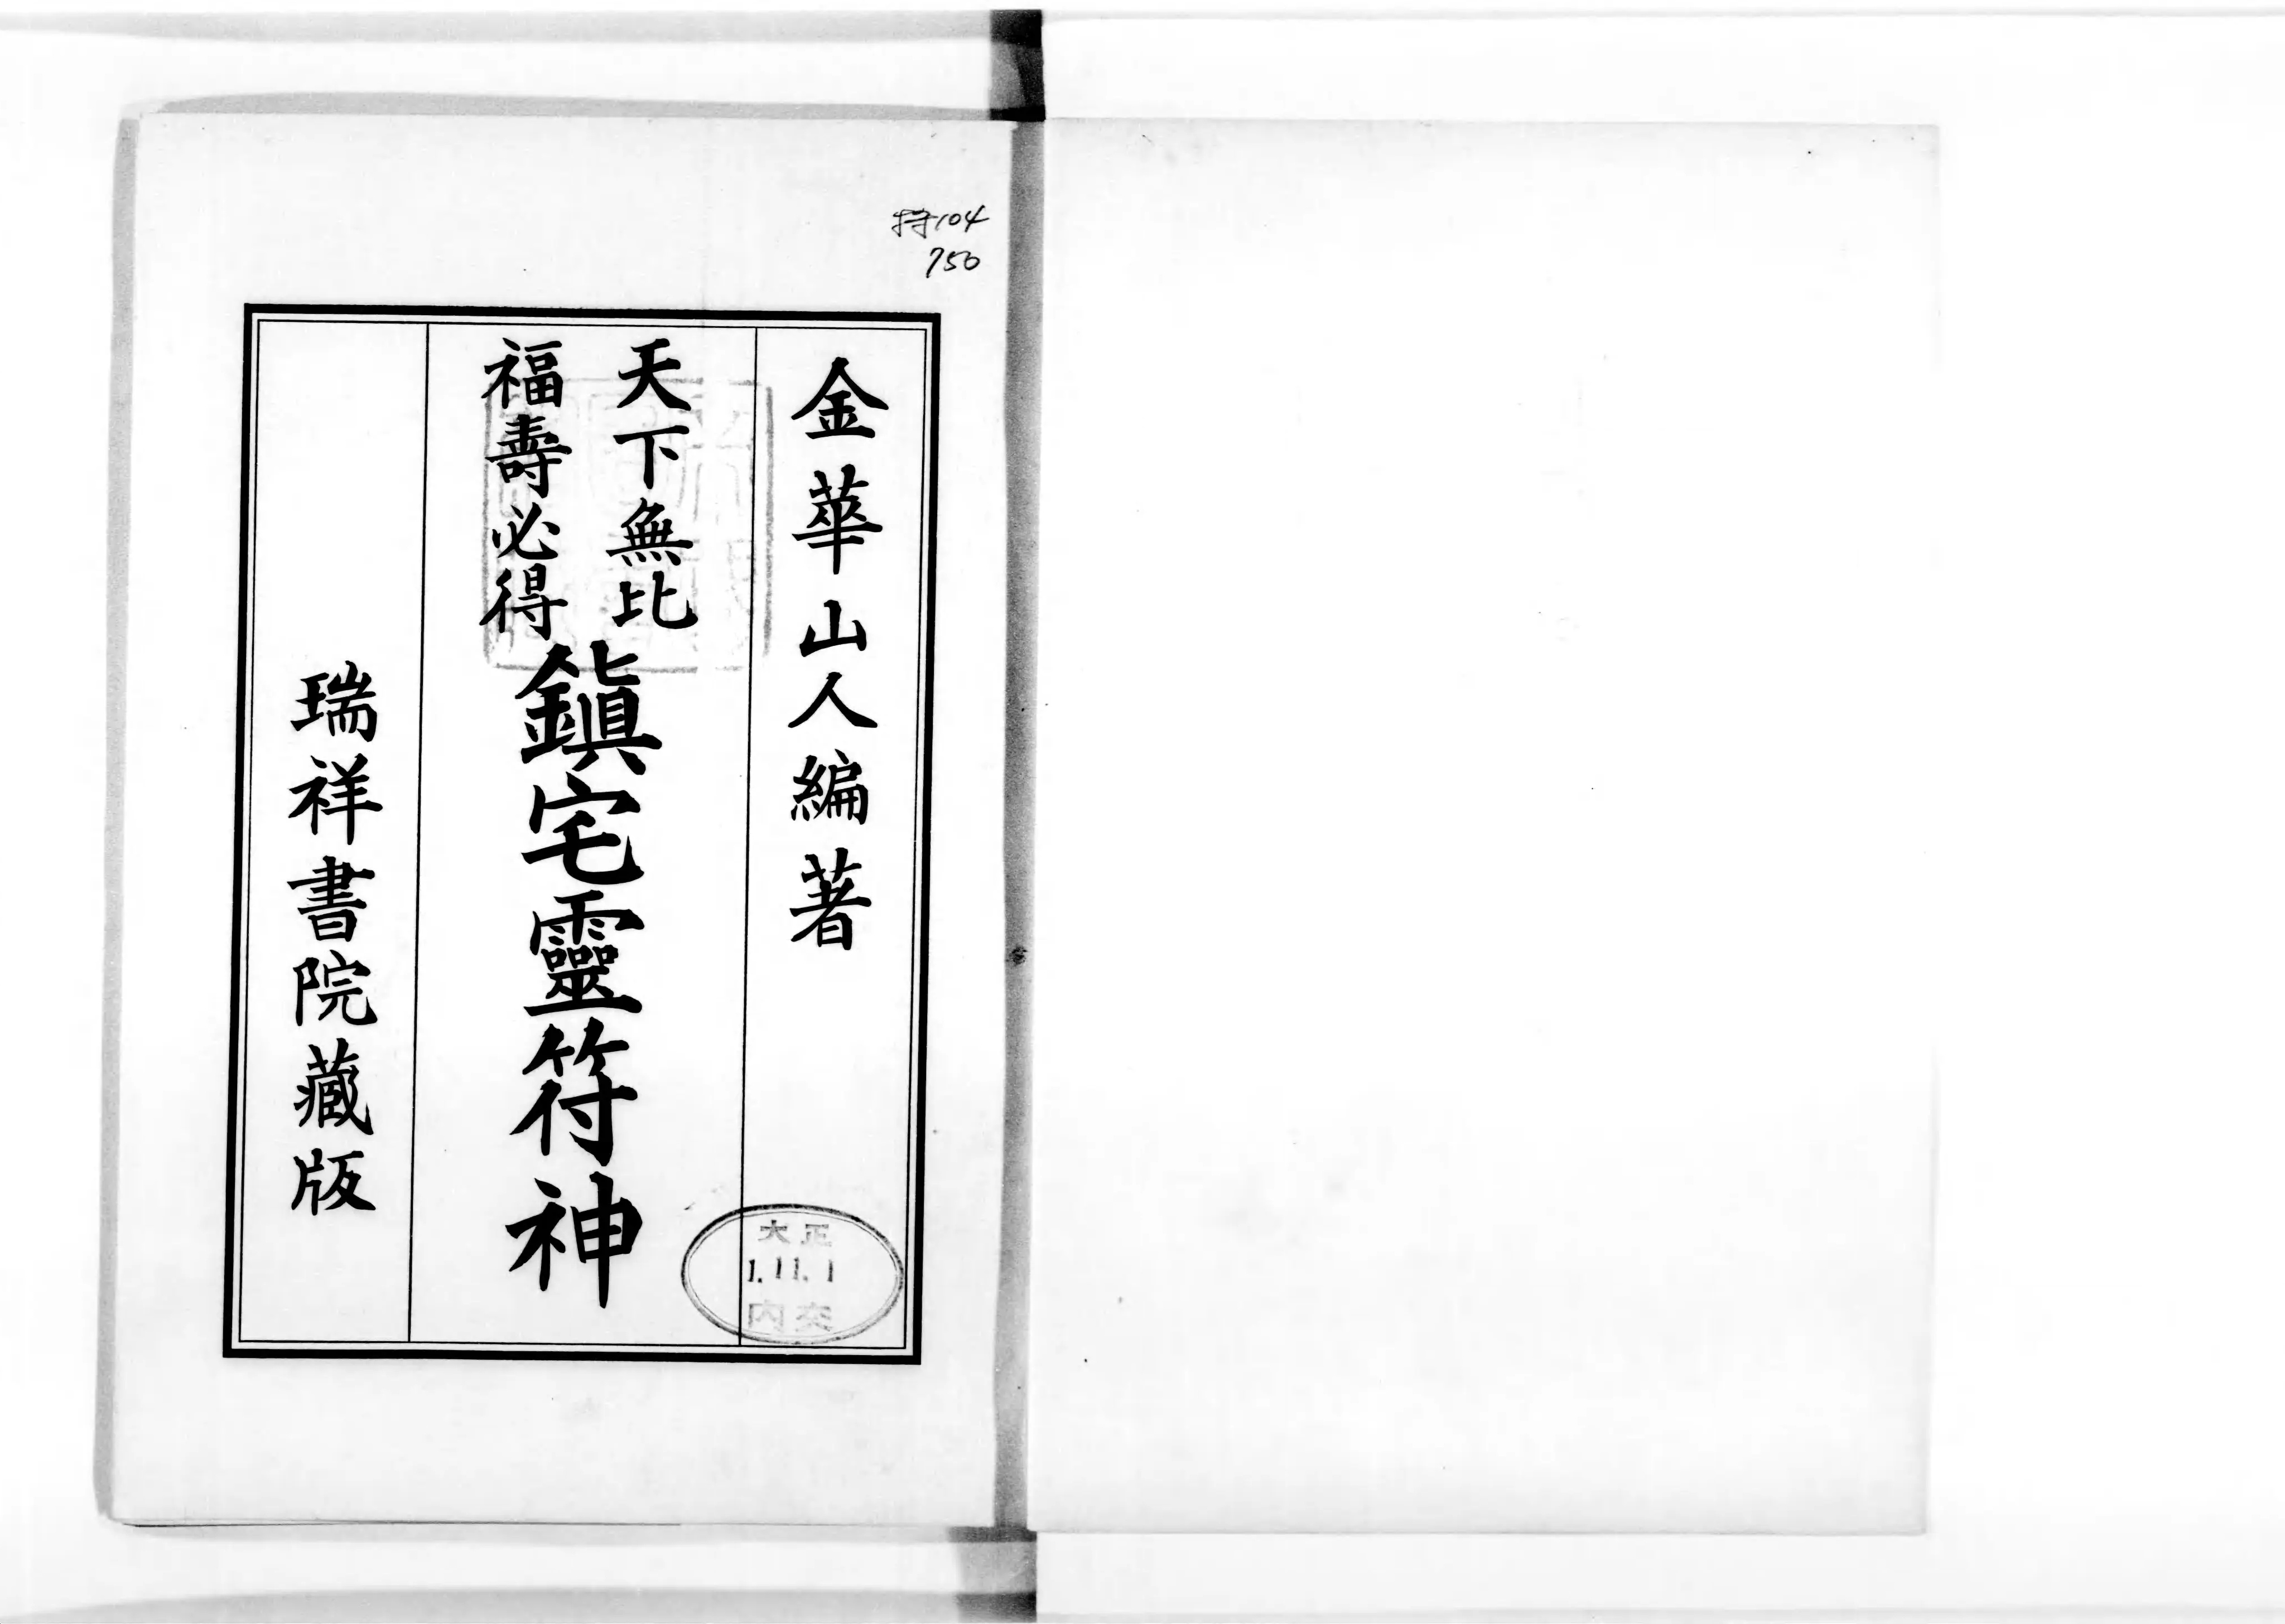 特104
750
金華山人編著
天下無比
福壽必得
鎭宅靈符神
瑞祥書院藏版
大正
1.11.1
内交